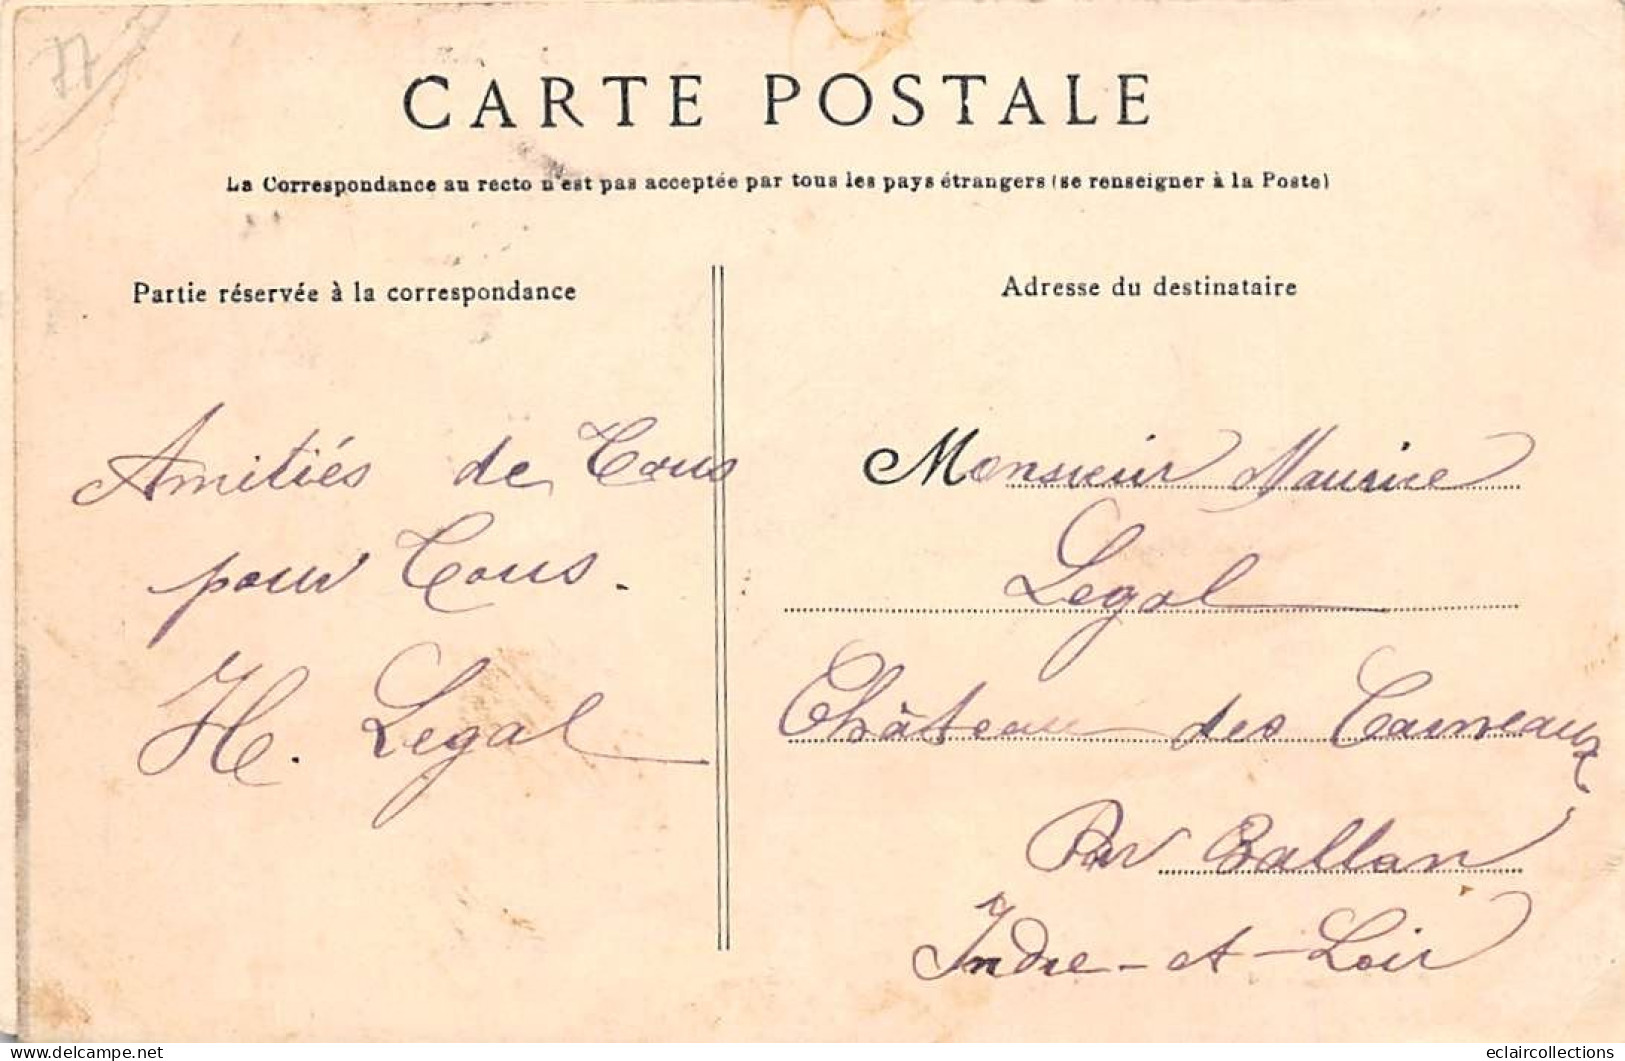 77
CARTE POSTALE
La Correspondance au recto n'est pas acceptée par tous les pays étrangers (se renseigner à la Poste)
Partie réservée à la correspondance
Amitiés de Tous
pour Tous.
H. Legal
Adresse du destinataire
Monsieur Maurice
Legal
Château des Carneaux
Par Ballan
Indre-et-Loir
delcampe.net
eclaircollections